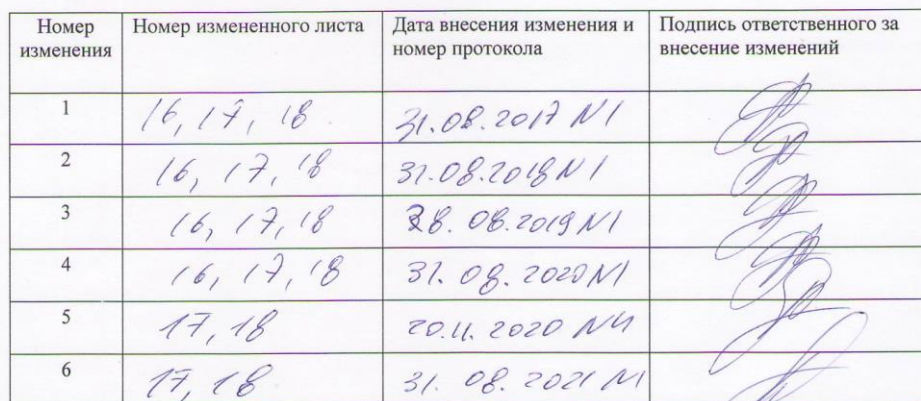 Номер изменения Номер измененного листа Дата внесения изменения и номер протокола Подпись ответственного за внесение изменений
1 16, 17, 18 31.08.2017 N1
2 16, 17, 18 31.08.2018 N1
3 16, 17, 18 28.08.2019 N1
4 16, 17, 18 31.08.2020 N1
5 17, 18 20.11.2020 N4
6 17, 18 31.08.2021 N1